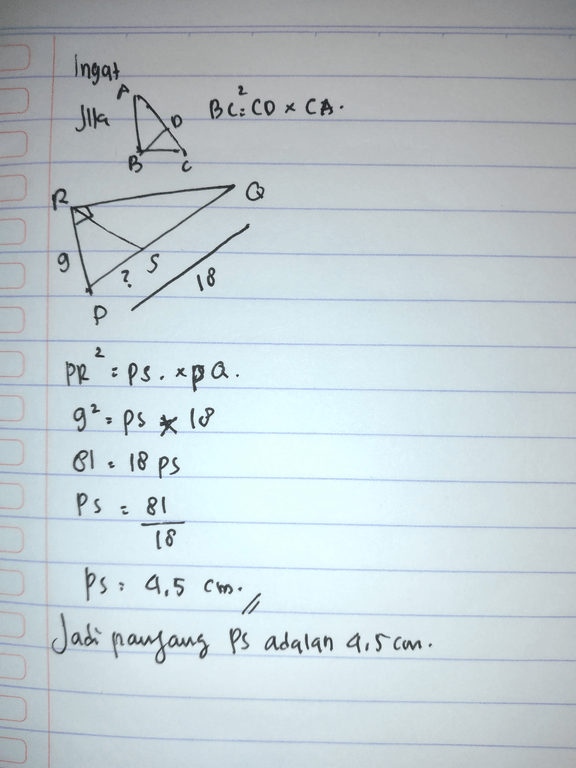 Ingat
A
Jika D BC² = CD × CA.
B C
R Q
9 S
? 18
P
PR² = PS. × PQ.
9² = PS × 18
81 = 18 PS
PS = 81
18
PS = 4,5 cm.
Jadi panjang PS adalah 4,5 cm.